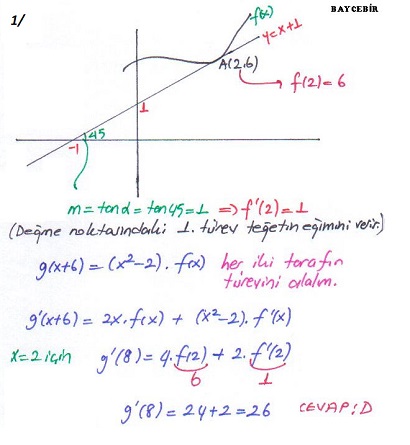 BAYCEBİR
1/
f(x)
y=x+1
A(2,6)
f(2)=6
1
45
-1
m=tanα=tan45=1 ⇒ f'(2)=1
(Değme noktasındaki 1. türev teğetin eğimini verir.)
g(x+6) = (x²-2). f(x) her iki tarafın
türevini alalım.
g'(x+6) = 2x.f(x) + (x²-2).f'(x)
x=2 için g'(8) = 4.f(2) + 2.f'(2)
6 1
g'(8) = 24+2=26 CEVAP:D